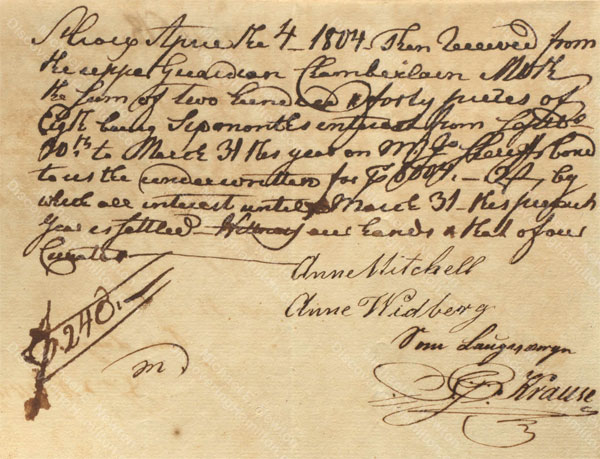 St Croix April the 4 1804 Then Received from
the upper Guardian Chamberlain Moth
the sum of two hundred & forty pieces of
Eight being Six months interest from
30th to March 31 this year on Mr Jo bond
to us the underwritten for P 8004. by
which all interest until March 31 this present
Year is settled Witness our hands & that of our
Curator
Anne Mitchell
Anne Widberg
Som
Krause
P. 240.